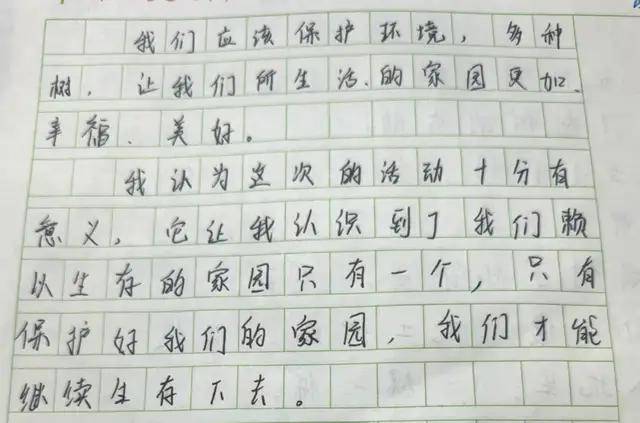 我们应该保护环境，多种
树，让我们所生活的家园更加
幸福、美好。
我认为这次的活动十分有
意义，它让我认识到了我们赖
以生存的家园只有一个，只有
保护好我们的家园，我们才能
继续生存下去。